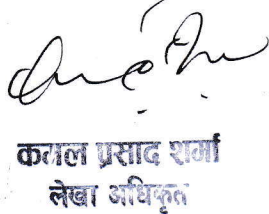 कमल प्रसाद शर्मा
लेखा अधिकृत